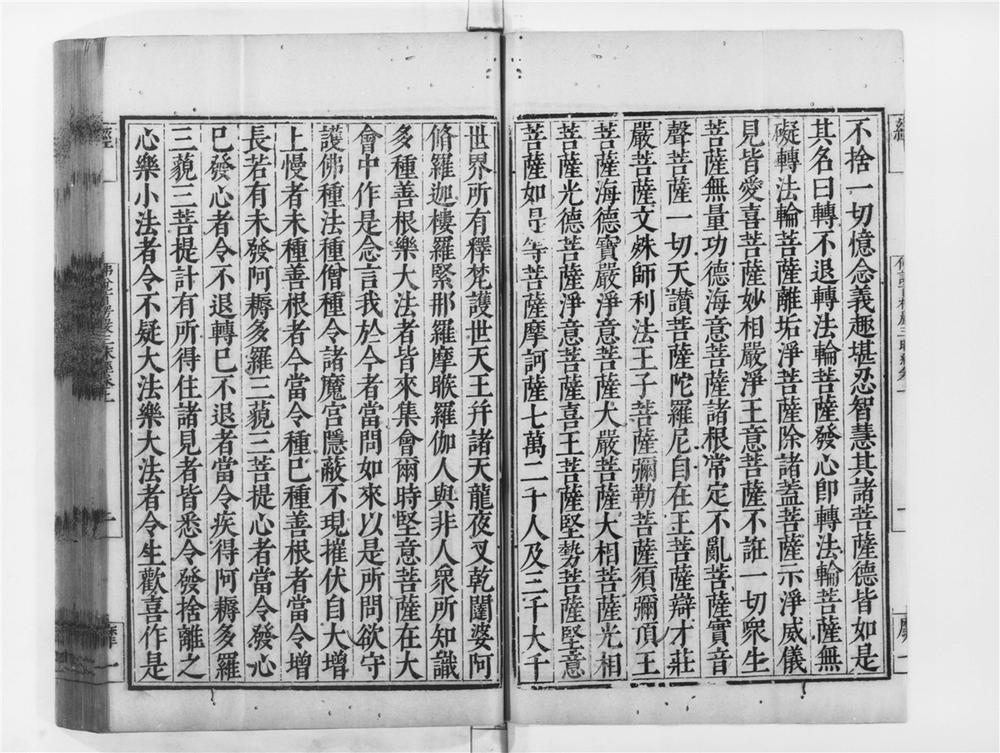 不捨一切憶念義趣堪忍智慧其諸菩薩德皆如是
其名曰轉不退轉法輪菩薩發心即轉法輪菩薩無
礙轉法輪菩薩離垢淨菩薩除諸蓋菩薩示淨威儀
見皆愛喜菩薩妙相嚴淨王意菩薩不誑一切眾生
菩薩無量功德海意菩薩諸根常定不亂菩薩實音
聲菩薩一切天讚菩薩陀羅尼自在王菩薩辯才莊
嚴菩薩文殊師利法王子菩薩彌勒菩薩須彌頂王
菩薩海德寶嚴淨意菩薩大嚴菩薩大相菩薩光相
菩薩光德菩薩淨意菩薩喜王菩薩堅勢菩薩堅意
菩薩如是等菩薩摩訶薩七萬二千人及三千大千
世界所有釋梵護世天王并諸天龍夜叉乾闥婆阿
脩羅迦樓羅緊那羅摩睺羅伽人與非人眾所知識
多種善根樂大法者皆來集會爾時堅意菩薩在大
會中作是念言我於今者當問如來以是所問欲守
護佛種法種僧種令諸魔宮隱蔽不現摧伏自大增
上慢者未種善根者今當令種已種善根者當令增
長若有未發阿耨多羅三藐三菩提心者當令發心
已發心者令不退轉已不退者當令疾得阿耨多羅
三藐三菩提計有所得住諸見者皆悉令發捨離之
心樂小法者令不疑大法樂大法者令生歡喜作是